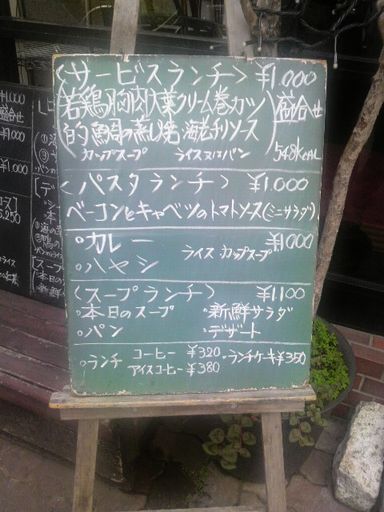 〈サービスランチ〉 ¥1.000
若鶏胸肉大葉クリーム巻カツ 盛合せ
的鯛の蒸し焼 海老チリソース
カップスープ ライス又はパン 548KCAL
〈パスタランチ〉 ¥1.000
ベーコンとキャベツのトマトソース(ミニサラダ)
・カレー ¥1000
・ハヤシ ライス カップスープ
〈スープランチ〉 ¥1100
・本日のスープ ・新鮮サラダ
・パン ・デザート
・ランチ コーヒー ¥320 ・ランチケーキ¥350
アイスコーヒー ¥380